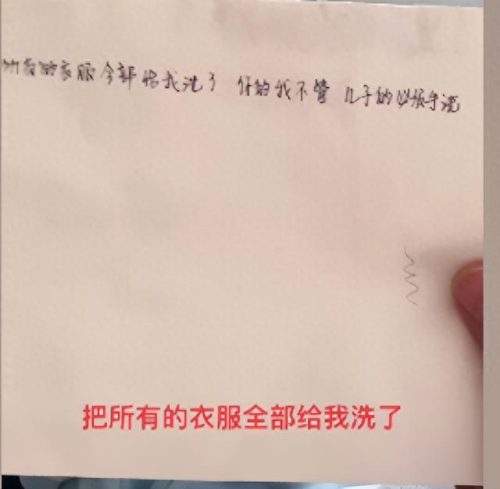 所有的衣服全部给我洗了 你的我不管 儿子的必须手洗
把所有的衣服全部给我洗了